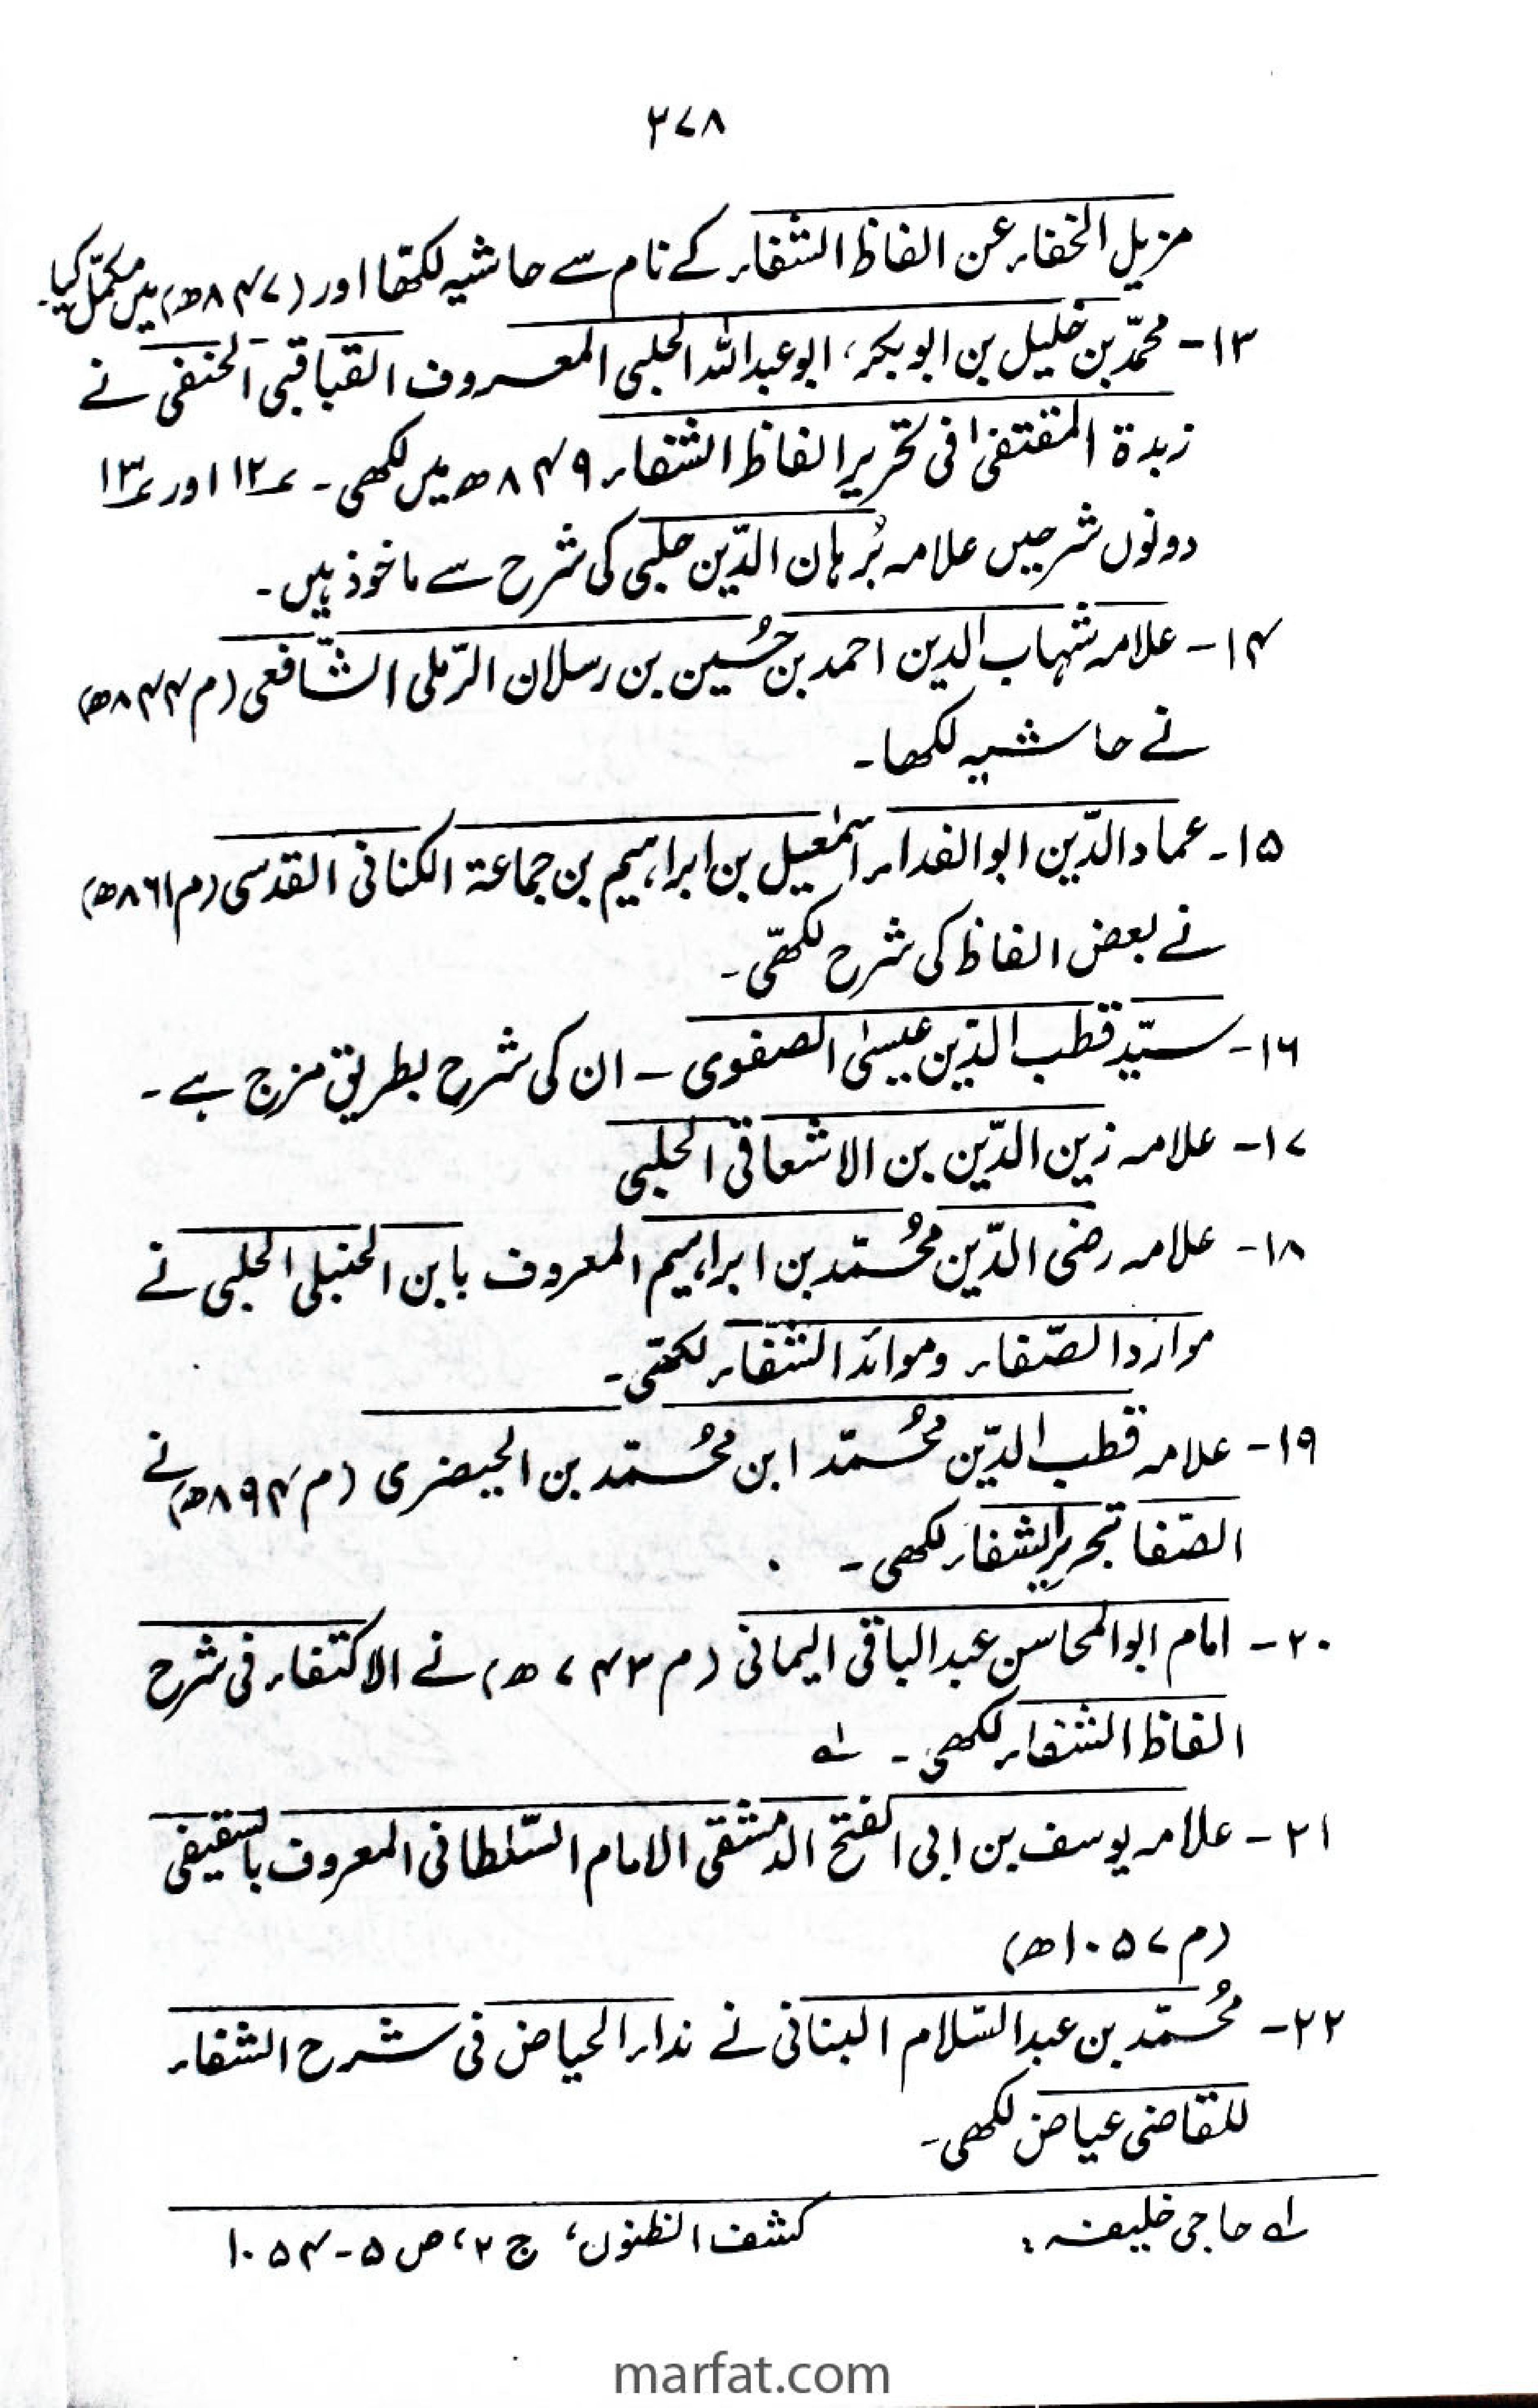 ۲۷۸
مزیل الخفاء عن الفاظ الشفاء کے نام سے حاشیہ لکھا اور (۸۴۷ھ) میں مکمّل کیا۔
۱۳- محمّد بن خلیل بن ابوبکر، ابو عبداللہ الحلبی المعروف القباقبی الحنفی نے
زبدۃ المقتفیٰ فی تحریر الفاظ الشفاء ۸۴۹ھ میں لکھی۔ ۱۲ اور ۱۳
دونوں شرحیں علامہ بُرہان الدّین حلبی کی شرح سے ماخوذ ہیں۔
۱۴- علامہ شہاب الدین احمد بن حُسین بن رسلان الرّملی الشّافعی (م ۸۴۴ھ)
نے حاشیہ لکھا۔
۱۵- عماد الدّین ابوالفداء اسمٰعیل بن ابراہیم بن جماعۃ الکنانی القدسی (م ۸۶۱ھ)
نے بعض الفاظ کی شرح لکھّی۔
۱۶- سیّد قطب الدّین عیسیٰ الصفوی - ان کی شرح بطریق مزج ہے۔
۱۷- علامہ زین الدّین بن الاشعاقی الحلبی
۱۸- علامہ رضی الدّین محُمّد بن ابراہیم المعروف بابن الحنبلی الحلبی نے
موارد الصّفاء وموائد الشّفاء لکھّی۔
۱۹- علامہ قطب الدّین محُمّد ابن محُمّد بن الحیضری (م ۸۹۴ھ) نے
الصّفا بتحریر الشفاء لکھی۔
۲۰- امام ابوالمحاسن عبدالباقی الیمانی (م ۷۴۳ھ) نے الاکتفاء فی شرح
الفاظ الشفاء لکھی۔ لہ
۲۱- علامہ یوسف بن ابی الفتح الدمشقی الامام السّلطانی المعروف بالسقیفی
(م ۱۰۵۷ھ)
۲۲- محُمّد بن عبدالسّلام البنانی نے نداء الحیاض فی شرح الشفاء
للقاضی عیاض لکھی۔
لہ حاجی خلیفہ: کشف الظنون، ج ۲، ص ۵-۱۰۵۴
marfat.com